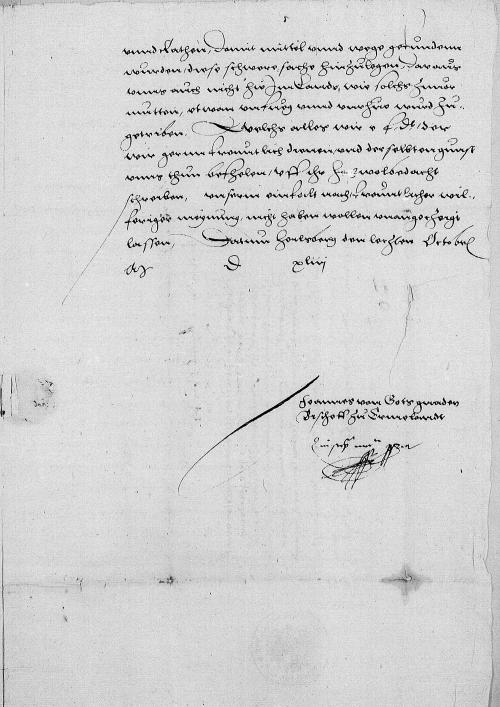 vnnd Rathen, damit mittel vnnd wege gefundenn
wurden, diese schwere sache hinzulegen, daraus
vnns auch nicht hir Im Lande, wie solchs zuuor
mutten, etwan vnfug vnnd vnrhue wurd zu
getriben. Welchs alles wir e f dt, der
wir gernn freuntlich dienen, vnd derselbten gunst
vnns thun befhelen, vff ihr wolbedacht
schreiben, vnserm einfalt nach, freuntlicher wil
feriger meynung, nicht haben wollen vnangezeigt
lassen, Datum Heilsberg den letzten Octobris
D xliii
Joannes von Gots gnaden
Bischoff zu Ermelandt